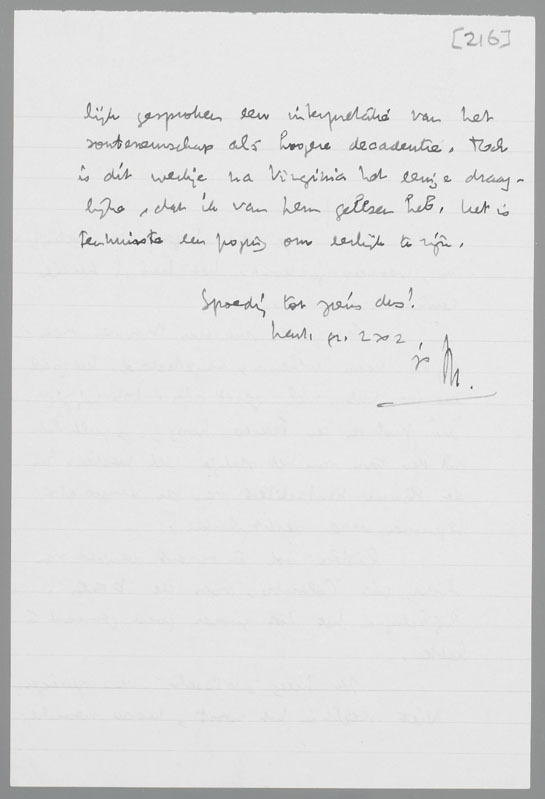 [216]
lijk gesproken een interpretatie van het
zondenaarschap als hoogere decadentie. Toch
is dit werkje na Virginia het eenige draag-
lijke, dat ik van hem gelezen heb. het is
tenminste een poging om eerlijk te zijn.
Spoedig tot ziens dus!
hart. gr. 2 x 2
je M.